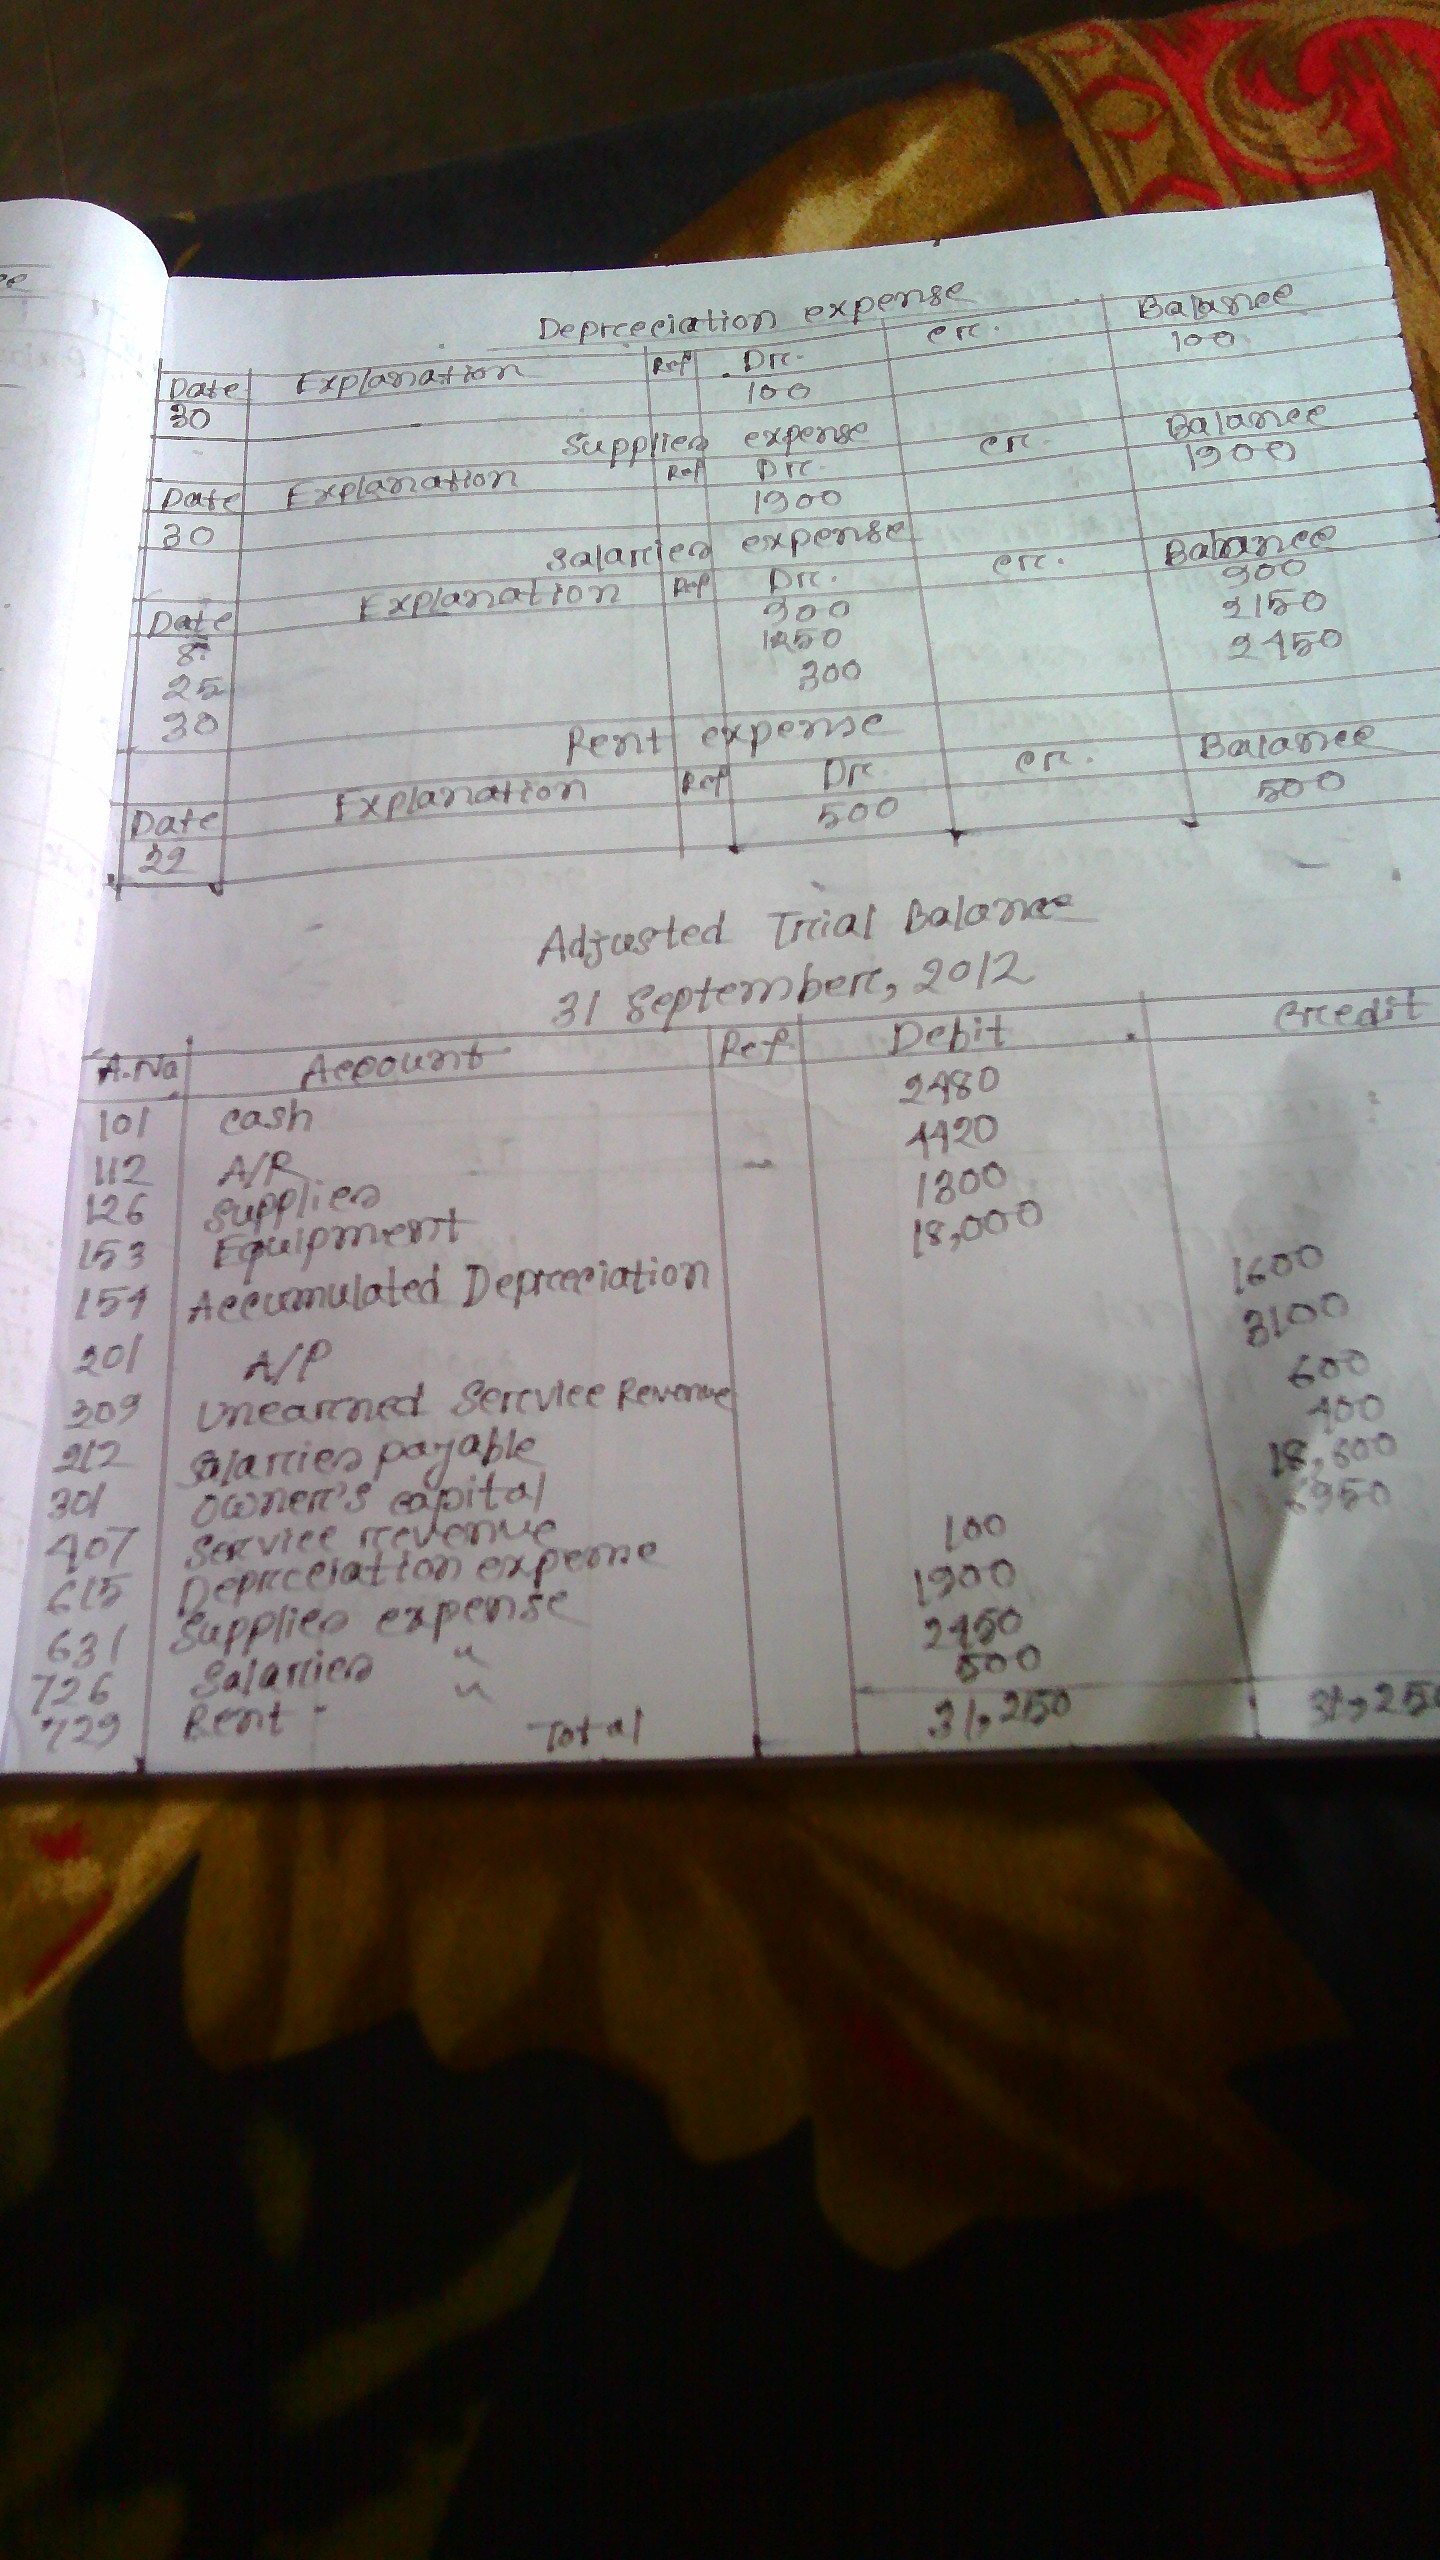 Depreciation expense
Date Explanation Ref Dr. cr. Balance
30 100 100
Supplies expense
Date Explanation Ref Dr. cr. Balance
30 1900 1900
Salaries expense
Date Explanation Ref Dr. cr. Balance
8 900 900
25 1250 2150
30 300 2450
Rent expense
Date Explanation Ref Dr. cr. Balance
22 500 500
Adjusted Trial Balance
31 September, 2012
A.No Account Ref Debit Credit
101 cash 2480
112 A/R 4420
126 Supplies 1300
153 Equipment 18,000
154 Accumulated Depreciation 1600
201 A/P 3100
209 Unearned Service Revenue 600
212 Salaries payable 400
301 Owner's capital 18,600
407 Service revenue 6950
615 Depreciation expense 100
631 Supplies expense 1900
726 Salaries " 2450
729 Rent " 500
Total 31,250 31,250